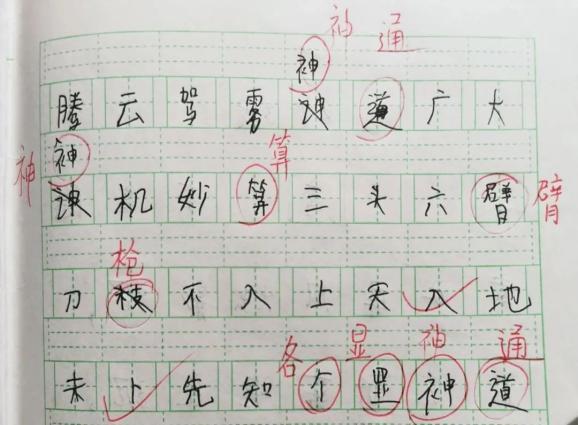 神 通
神
腾云驾雾诀道广大
神 算
神 诀机妙算三头六臂 臂
枪
刀枝不入上天入地
各 显 神 通
未卜先知个显神道